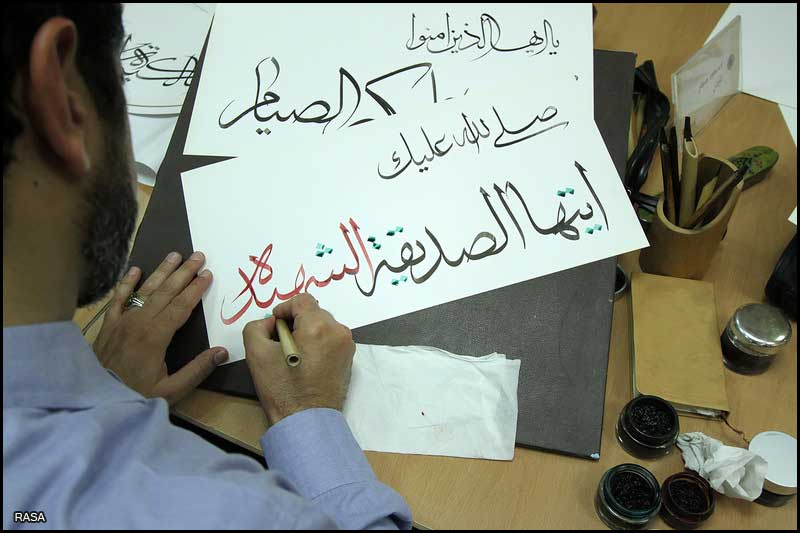 یا ایها الذین امنوا
الصیام
صلی الله علیک
ایتها الصدیقة الشهیدة
RASA